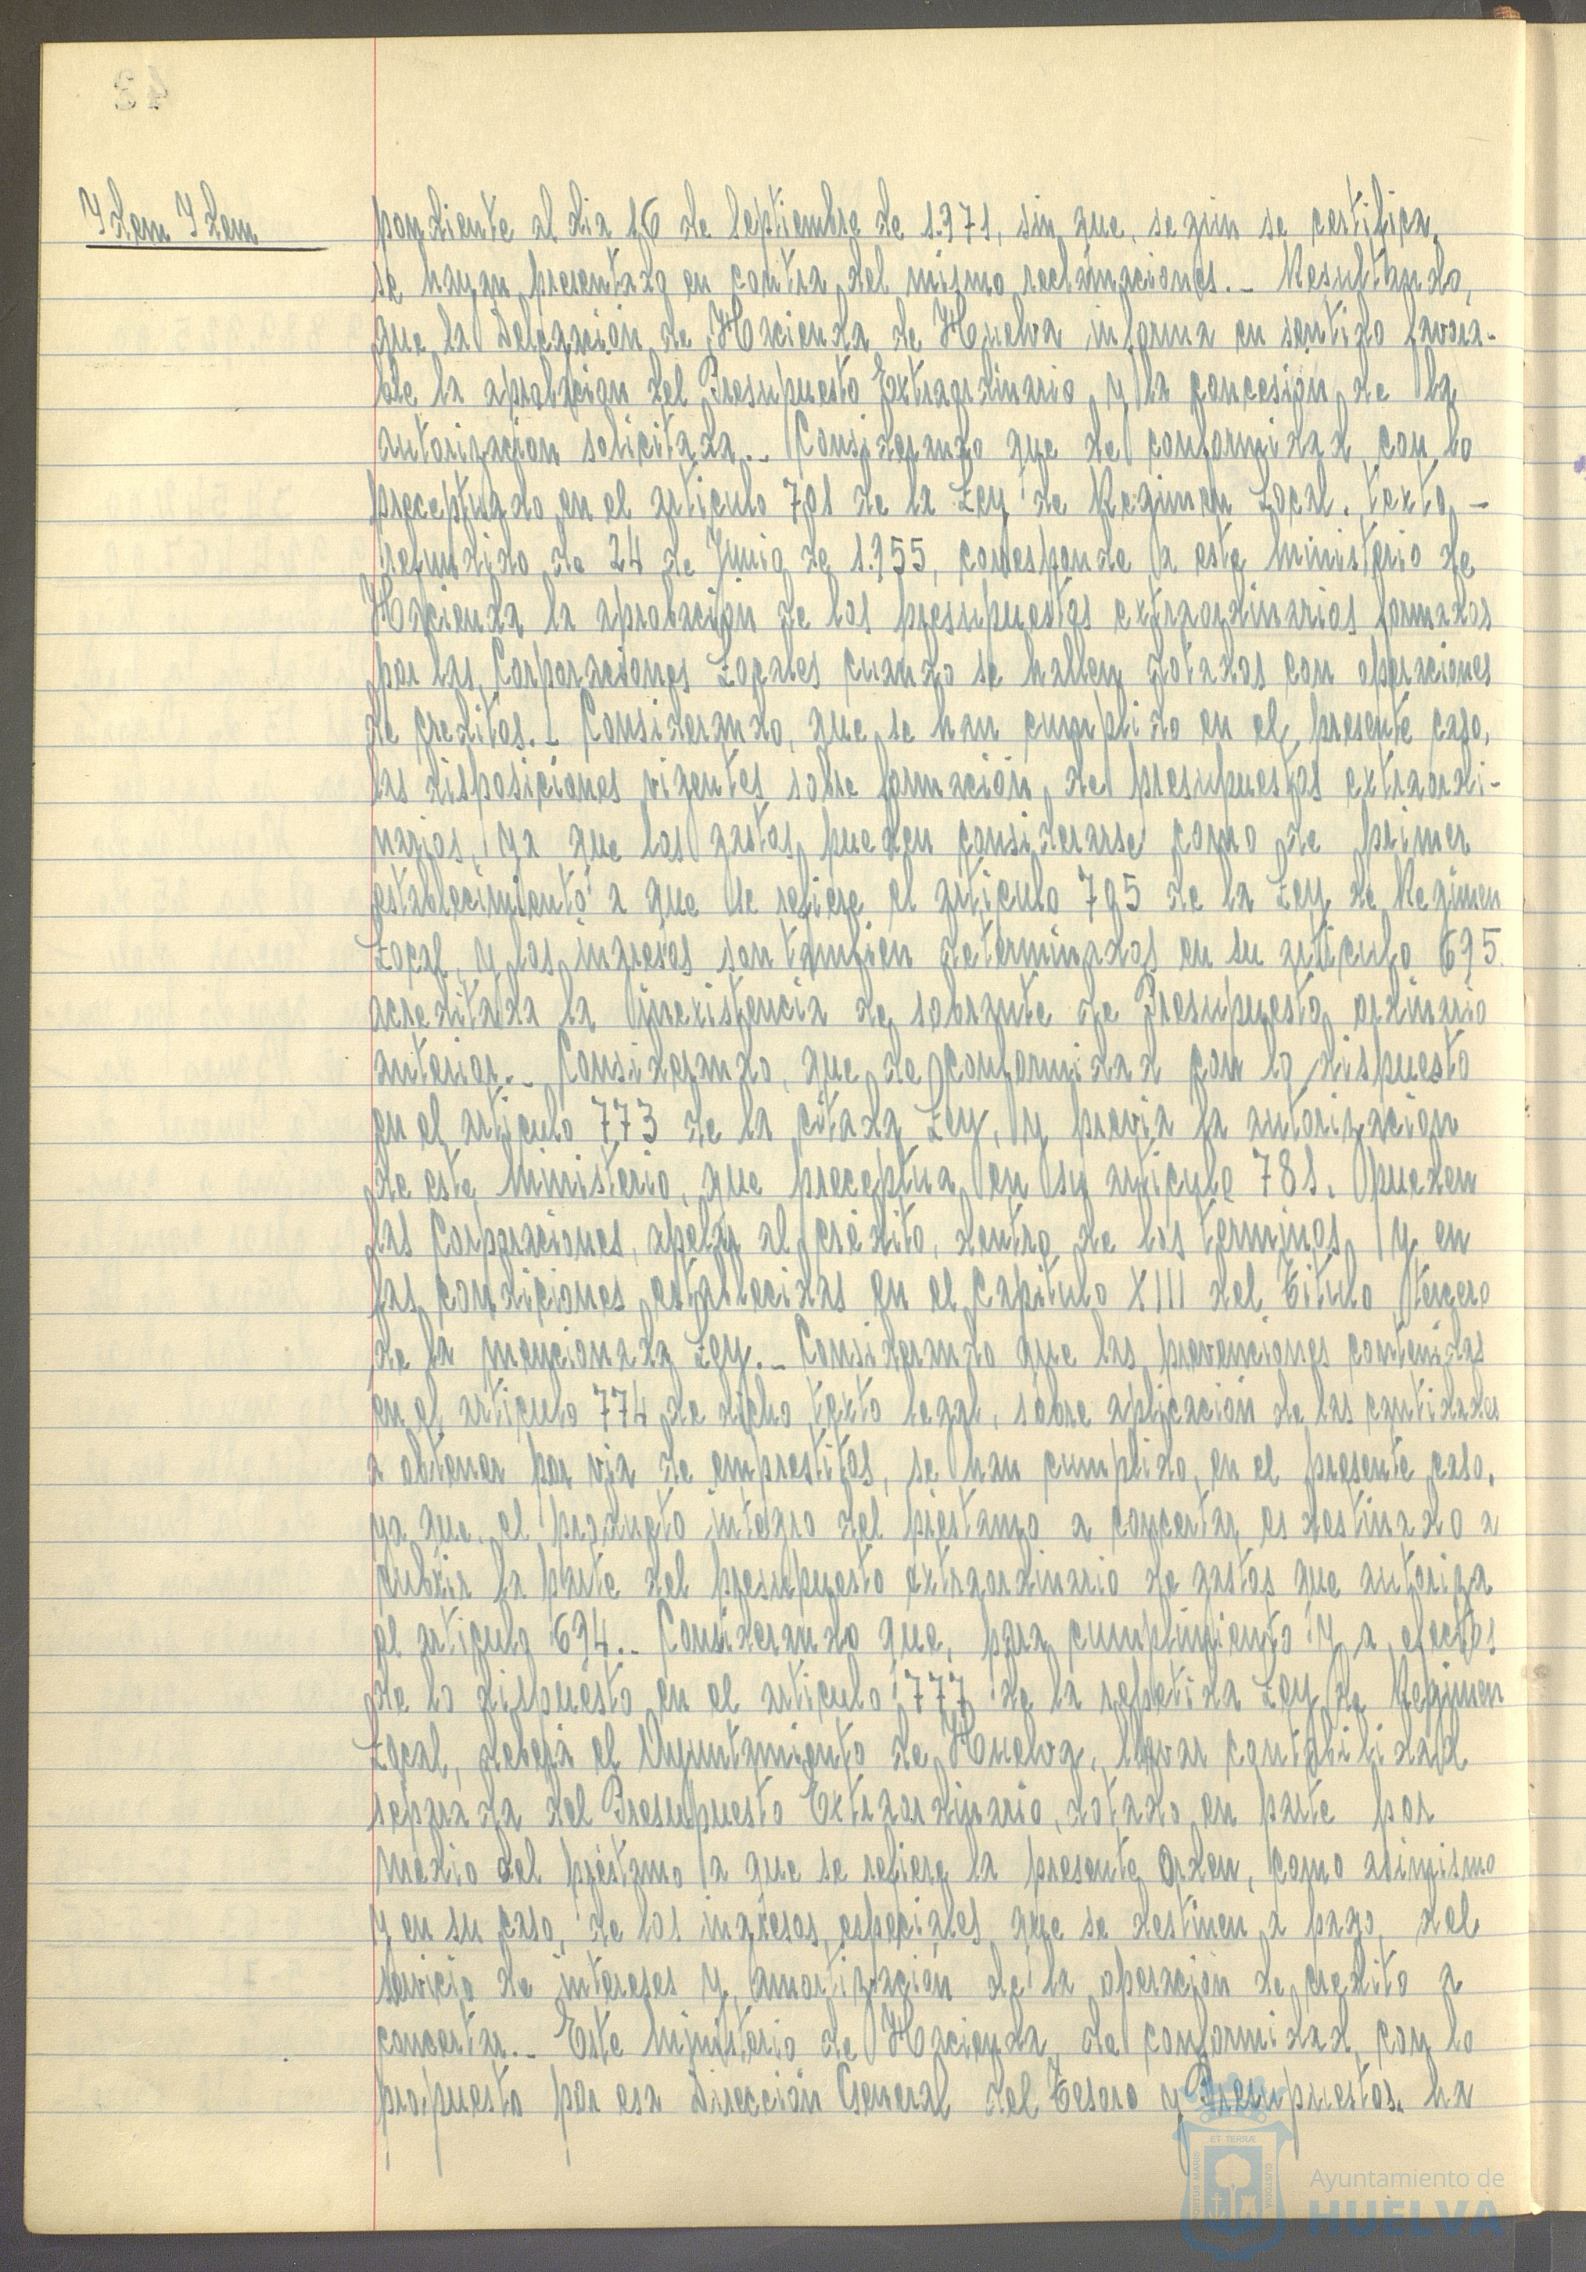 Idem Idem
pondiente al dia 16 de Septiembre de 1.971, sin que, segun se certifica,
se hayan presentado en contra del mismo reclamaciones.- Resultando,
que la Delegación de Hacienda de Huelva informa en sentido favora-
ble la aprobacion del Presupuesto Extraordinario y la concesión de la
autorizacion solicitada.- Considerando que de conformidad con lo
preceptuado en el articulo 701 de la Ley de Regimen Local. texto -
refundido de 24 de Junio de 1.955, corresponde a este Ministerio de
Hacienda la aprobación de los presupuestos extraordinarios formados
por las Corporaciones Locales cuando se hallen dotados con operaciones
de creditos.- Considerando, que se han cumplido en el presente caso,
las disposiciones vigentes sobre formación de presupuestos extraordi-
narios, ya que los gastos pueden considerarse como de primer
establecimiento a que se refiere el articulo 705 de la Ley de Regimen
Local, y los ingresos son tambien determinados en su articulo 695.
acreditada la inexistencia de sobrante de Presupuesto ordinario
anterior.- Considerando, que de conformidad con lo dispuesto
en el articulo 773 de la citada Ley, y previa la autorizacion
de este Ministerio, que preceptua en su articulo 781, pueden
las Corporaciones, apelar al crédito, dentro de los terminos y en
las condiciones establecidas en el Capitulo XIII del Titulo tercero
de la mencionada Ley.- Considerando que las prevenciones contenidas
en el articulo 774 de dicho texto legal, sobre aplicación de las cantidades
a obtener por via de emprestitos, se han cumplido en el presente caso,
ya que el producto integro del prestamo a concertar es destinado a
cubrir la parte del presupuesto extraordinario de gastos que autoriza
el articulo 694.- Considerando que, para cumplimiento y a efectos
de lo dispuesto en el articulo 777 de la repetida Ley de Regimen
Local, deberá el Ayuntamiento de Huelva, llevar contabilidad
separada del Presupuesto Extraordinario, dotado en parte por
medio del préstamo a que se refiere la presente Orden, como asimismo
y en su caso, de los ingresos especiales que se destinen a pago del
servicio de intereses y amortización de la operación de credito a
concertar.- Este Ministerio de Hacienda, de conformidad con lo
propuesto por esa Dirección General del Tesoro y Presupuestos, ha
ET TERRÆ
PORTUS MARIS
CUSTODIA
Ayuntamiento de
HUELVA